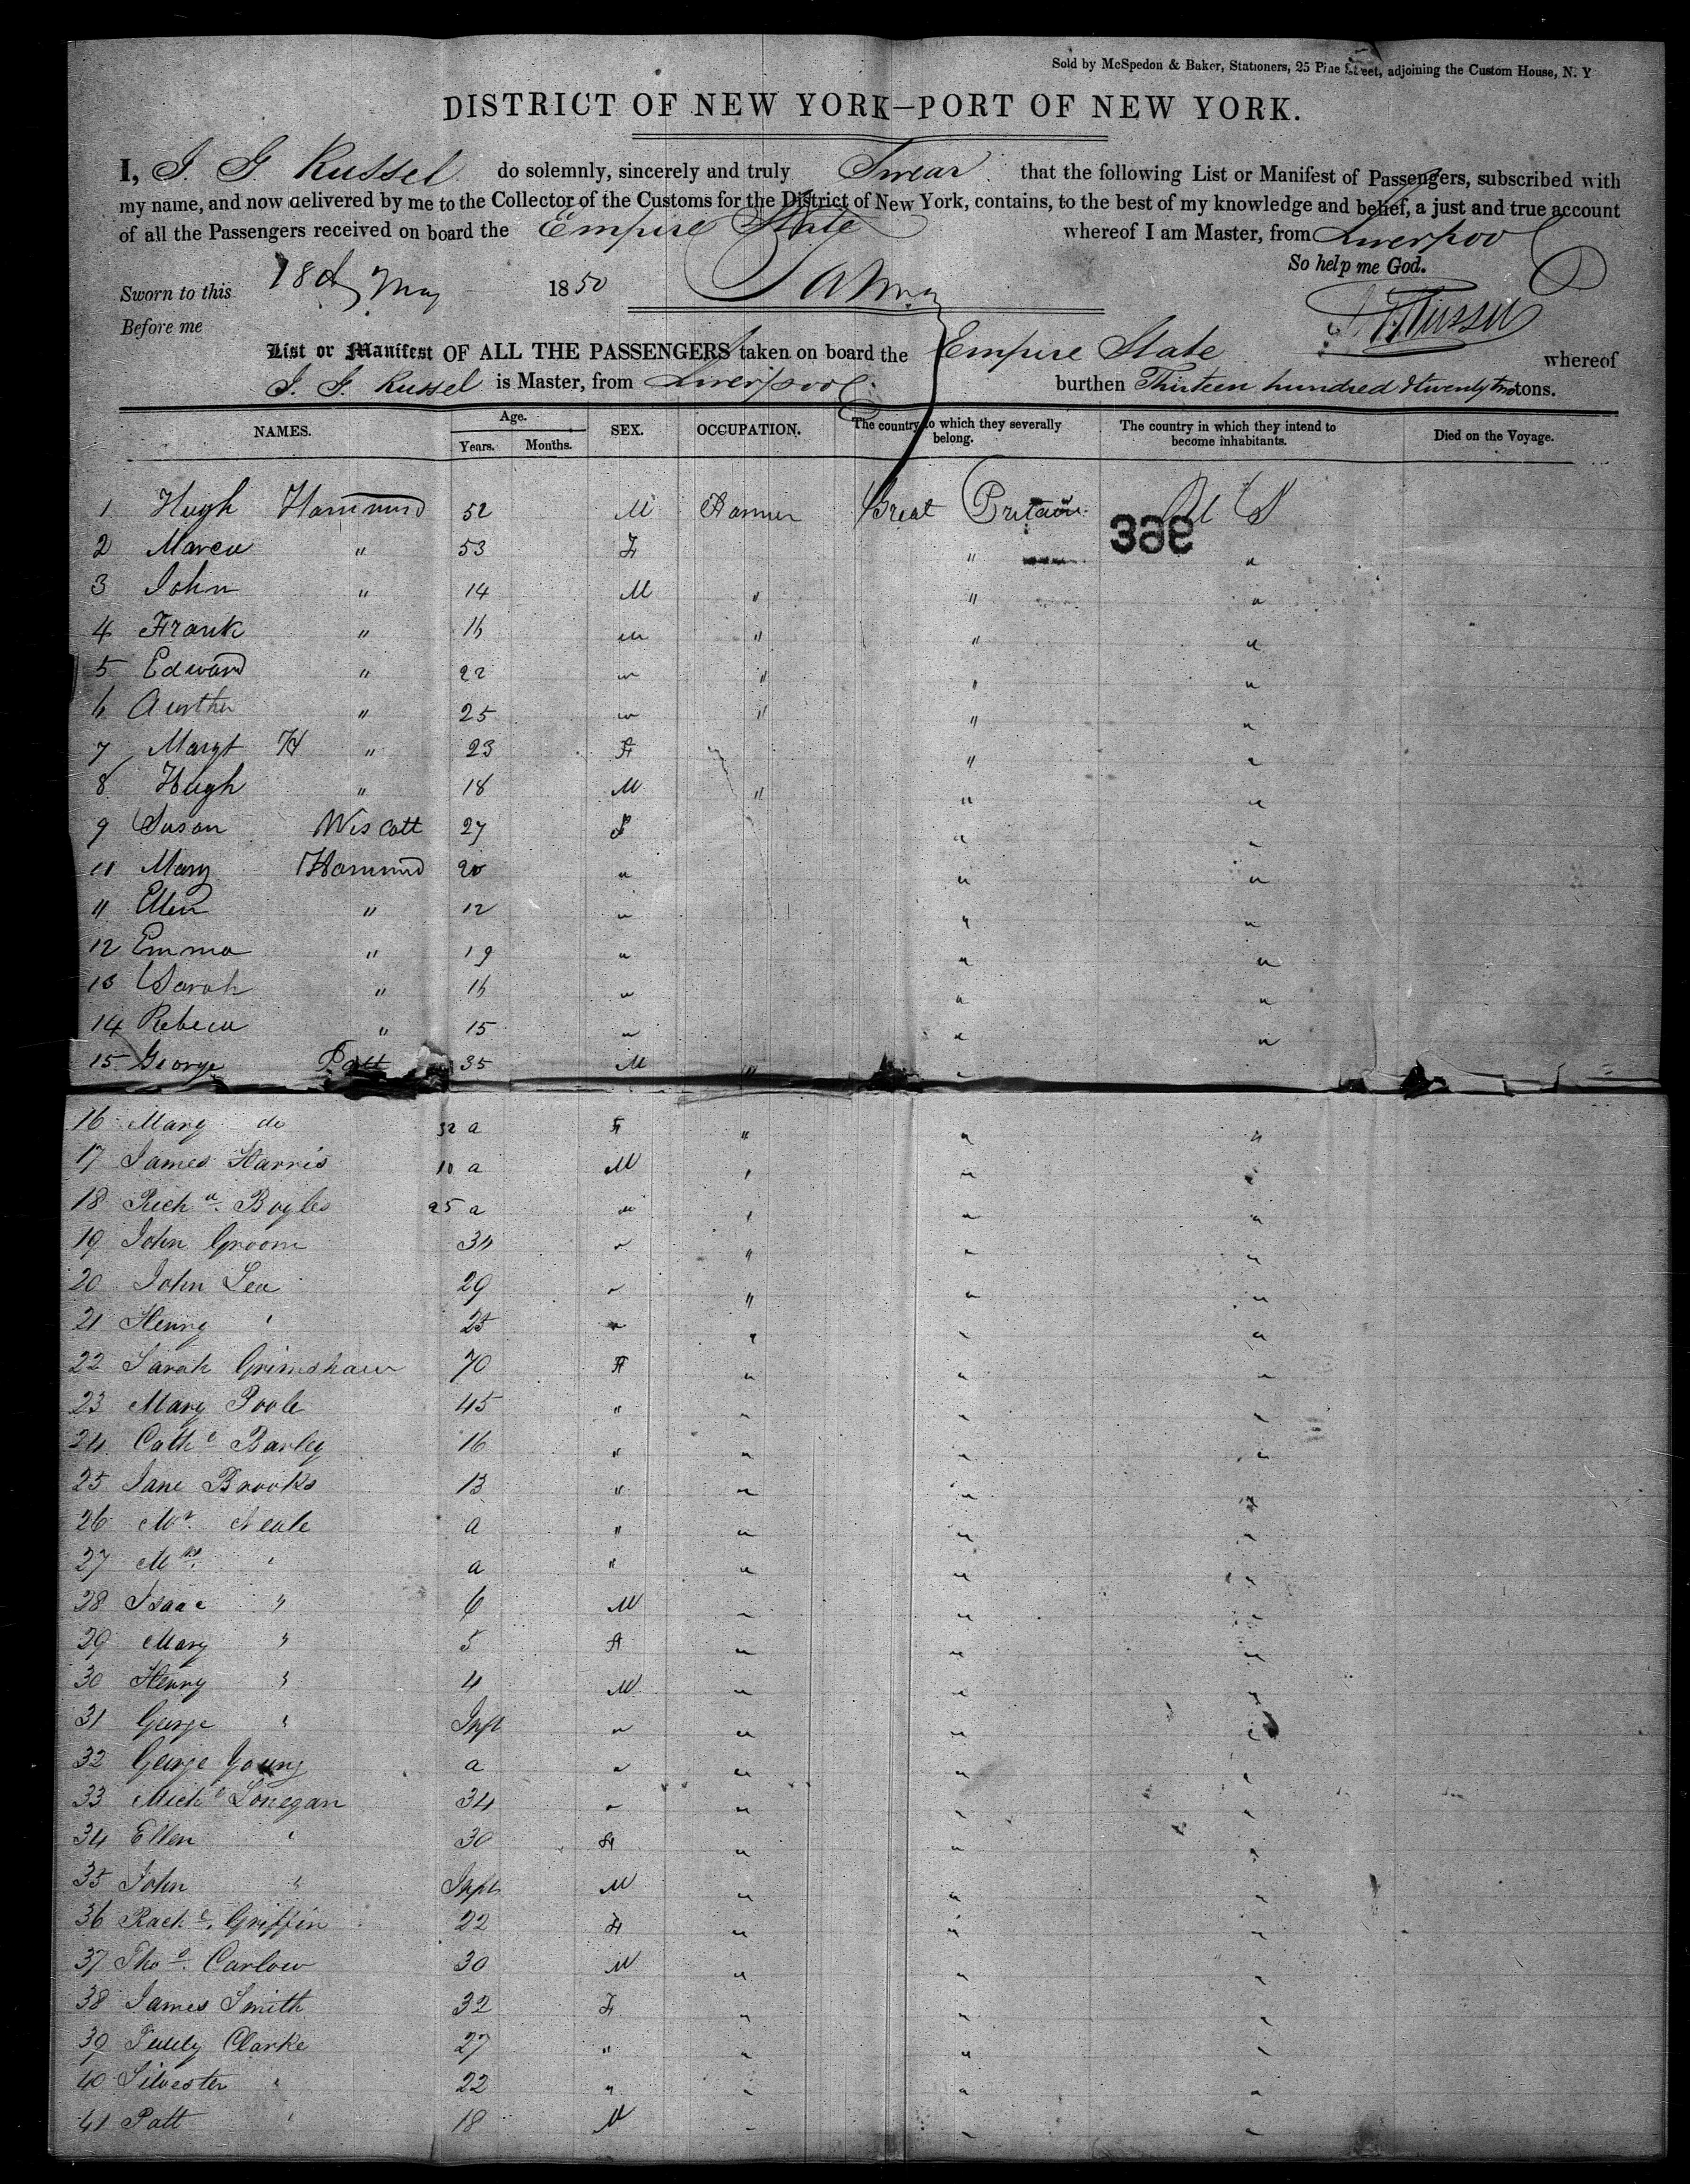 Sold by McSpedon & Baker, Stationers, 25 Pine Street, adjoining the Custom House, N. Y
DISTRICT OF NEW YORK—PORT OF NEW YORK.
I, J. G. Russel do solemnly, sincerely and truly Swear that the following List or Manifest of Passengers, subscribed with
my name, and now delivered by me to the Collector of the Customs for the District of New York, contains, to the best of my knowledge and belief, a just and true account
of all the Passengers received on board the Empire State whereof I am Master, from Liverpool
So help me God.
Sworn to this 18 May 1850
Before me
List or Manifest OF ALL THE PASSENGERS taken on board the Empire State whereof
J. G. Russel is Master, from Liverpool burthen Thirteen hundred & twenty two tons.
NAMES. Age. Years. Months. SEX. OCCUPATION. The country to which they severally belong. The country in which they intend to become inhabitants. Died on the Voyage.
1 Hugh Hammond 52 M Farmer Great Britain U S
396
2 " 53 F " "
3 John " 14 M " " "
4 Frank " 16 " " " "
5 Edward " 22 " " " "
6 Aurthur " 25 " " " "
7 Margt H " 23 F " "
8 Hugh " 18 M " " "
9 Susan Wiscott 27 F " "
10 Mary Hammond 20 " " "
11 Ellen " 12 " " "
12 Emma " 19 " " "
13 Sarah " 16 " " "
14 Rebecca " 15 " " "
15 George Patt 35 M " "
16 Mary do 32 a F " " "
17 James Harris 10 a M " " "
18 Richd. Boyles 25 a " " " "
19 John Groom 34 " " " "
20 John Lea 29 " " " "
21 Henry " 25 " " " "
22 Sarah Grimshaw 70 F " " "
23 Mary Poole 45 " " " "
24 Cathe Barley 16 " " " "
25 Jane Brooks 13 " " " "
26 Mr. Neale a " " " "
27 Mrs. " a " " " "
28 Isaac " 6 M " " "
29 Mary " 5 F " " "
30 Henry " 4 M " " "
31 George " Inft " " " "
32 George Young a " " " "
33 Michl Lonegan 34 " " " "
34 Ellen " 30 F " " "
35 John " Inft M " " "
36 Rachl. Griffin 22 F " " "
37 Thos. Carlow 30 M " " "
38 James Smith 32 F " " "
39 Clarke 27 " " " "
40 Silvester " 22 " " " "
41 Patt " 18 M " " "